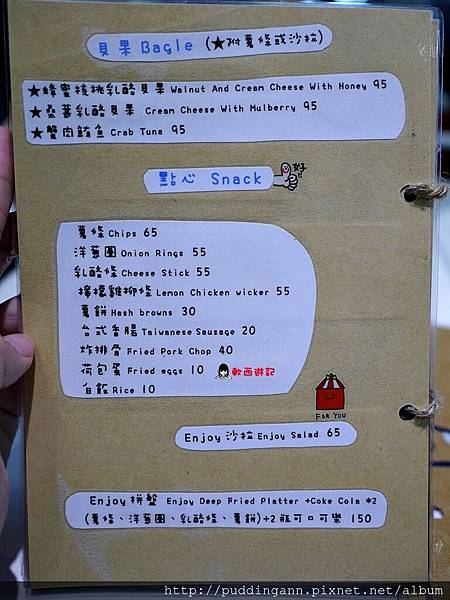 貝果 Bagle (★附薯條或沙拉)
★蜂蜜核桃乳酪貝果 Walnut And Cream Cheese With Honey 95
★桑葚乳酪貝果 Cream Cheese With Mulberry 95
★蟹肉鮪魚 Crab Tuna 95
點心 Snack
好!!
薯條 Chips 65
洋蔥圈 Onion Rings 55
乳酪條 Cheese Stick 55
檸檬雞柳條 Lemon Chicken wicker 55
薯餅 Hash browns 30
台式香腸 Taiwanese Sausage 20
炸排骨 Fried Pork Chop 40
荷包蛋 Fried eggs 10
軟西遊記
白飯 Rice 10
FOR YOU
Enjoy 沙拉 Enjoy Salad 65
Enjoy 拼盤 Enjoy Deep Fried Platter +Coke Cola *2
(薯條、洋蔥圈、乳酪條、薯餅)+2 瓶可口可樂 150
http://puddingann.pixnet.net/album